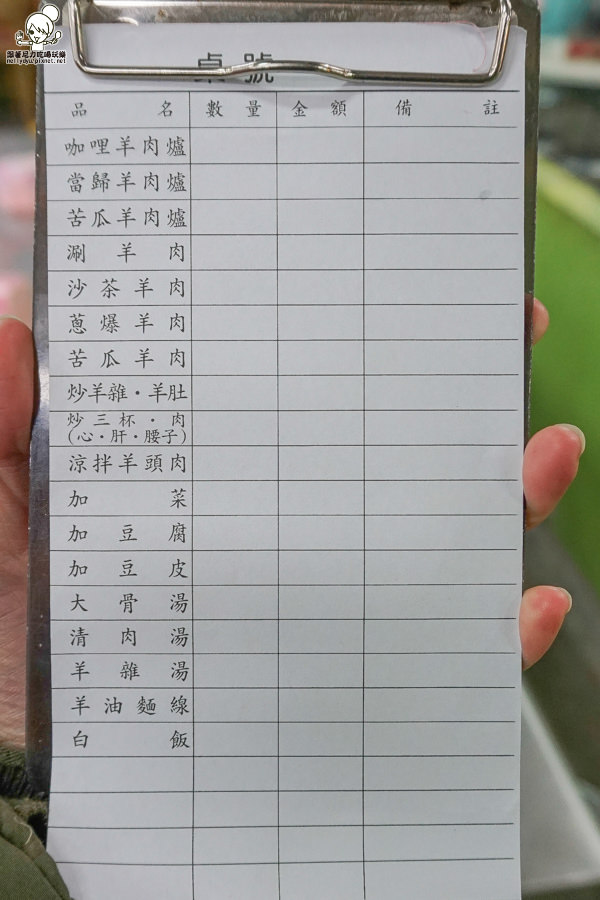 跟著尼力吃喝玩樂
nellydyu.pixnet.net
桌號
品名 數量 金額 備註
咖哩羊肉爐
當歸羊肉爐
苦瓜羊肉爐
涮羊肉
沙茶羊肉
蔥爆羊肉
苦瓜羊肉
炒羊雜·羊肚
炒三杯·肉
(心·肝·腰子)
涼拌羊頭肉
加菜
加豆腐
加豆皮
大骨湯
清肉湯
羊雜湯
羊油麵線
白飯